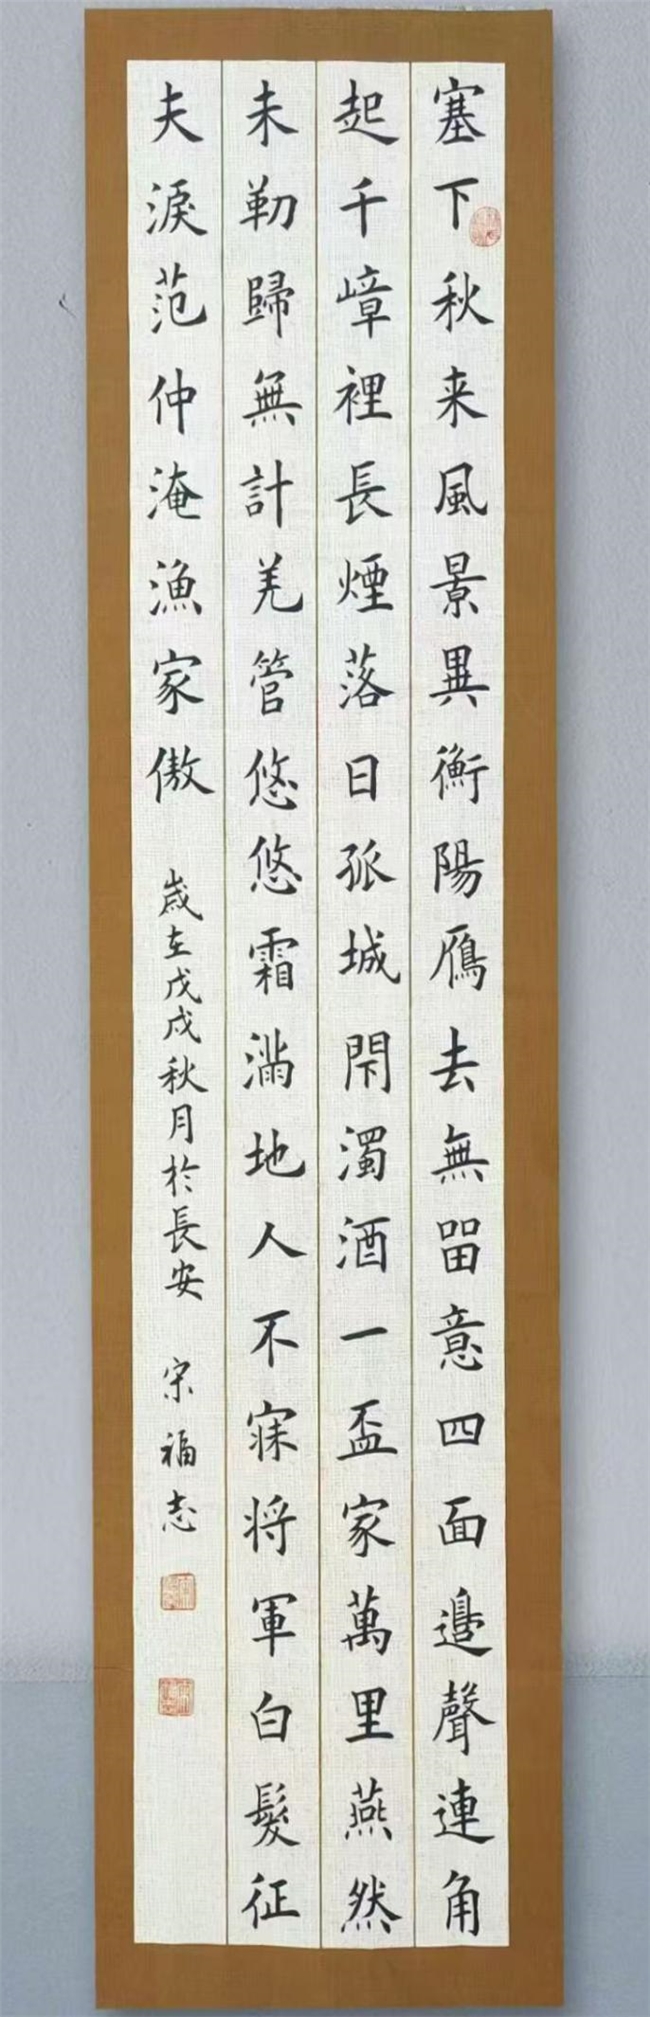 塞下秋来風景異衡陽鴈去無畱意四面邊聲連角
起千嶂裡長煙落日孤城閇濁酒一盃家萬里燕然
未勒歸無計羌管悠悠霜滿地人不寐将軍白髮征
夫淚范仲淹漁家傲
歲在戊戌秋月於長安 宋福志